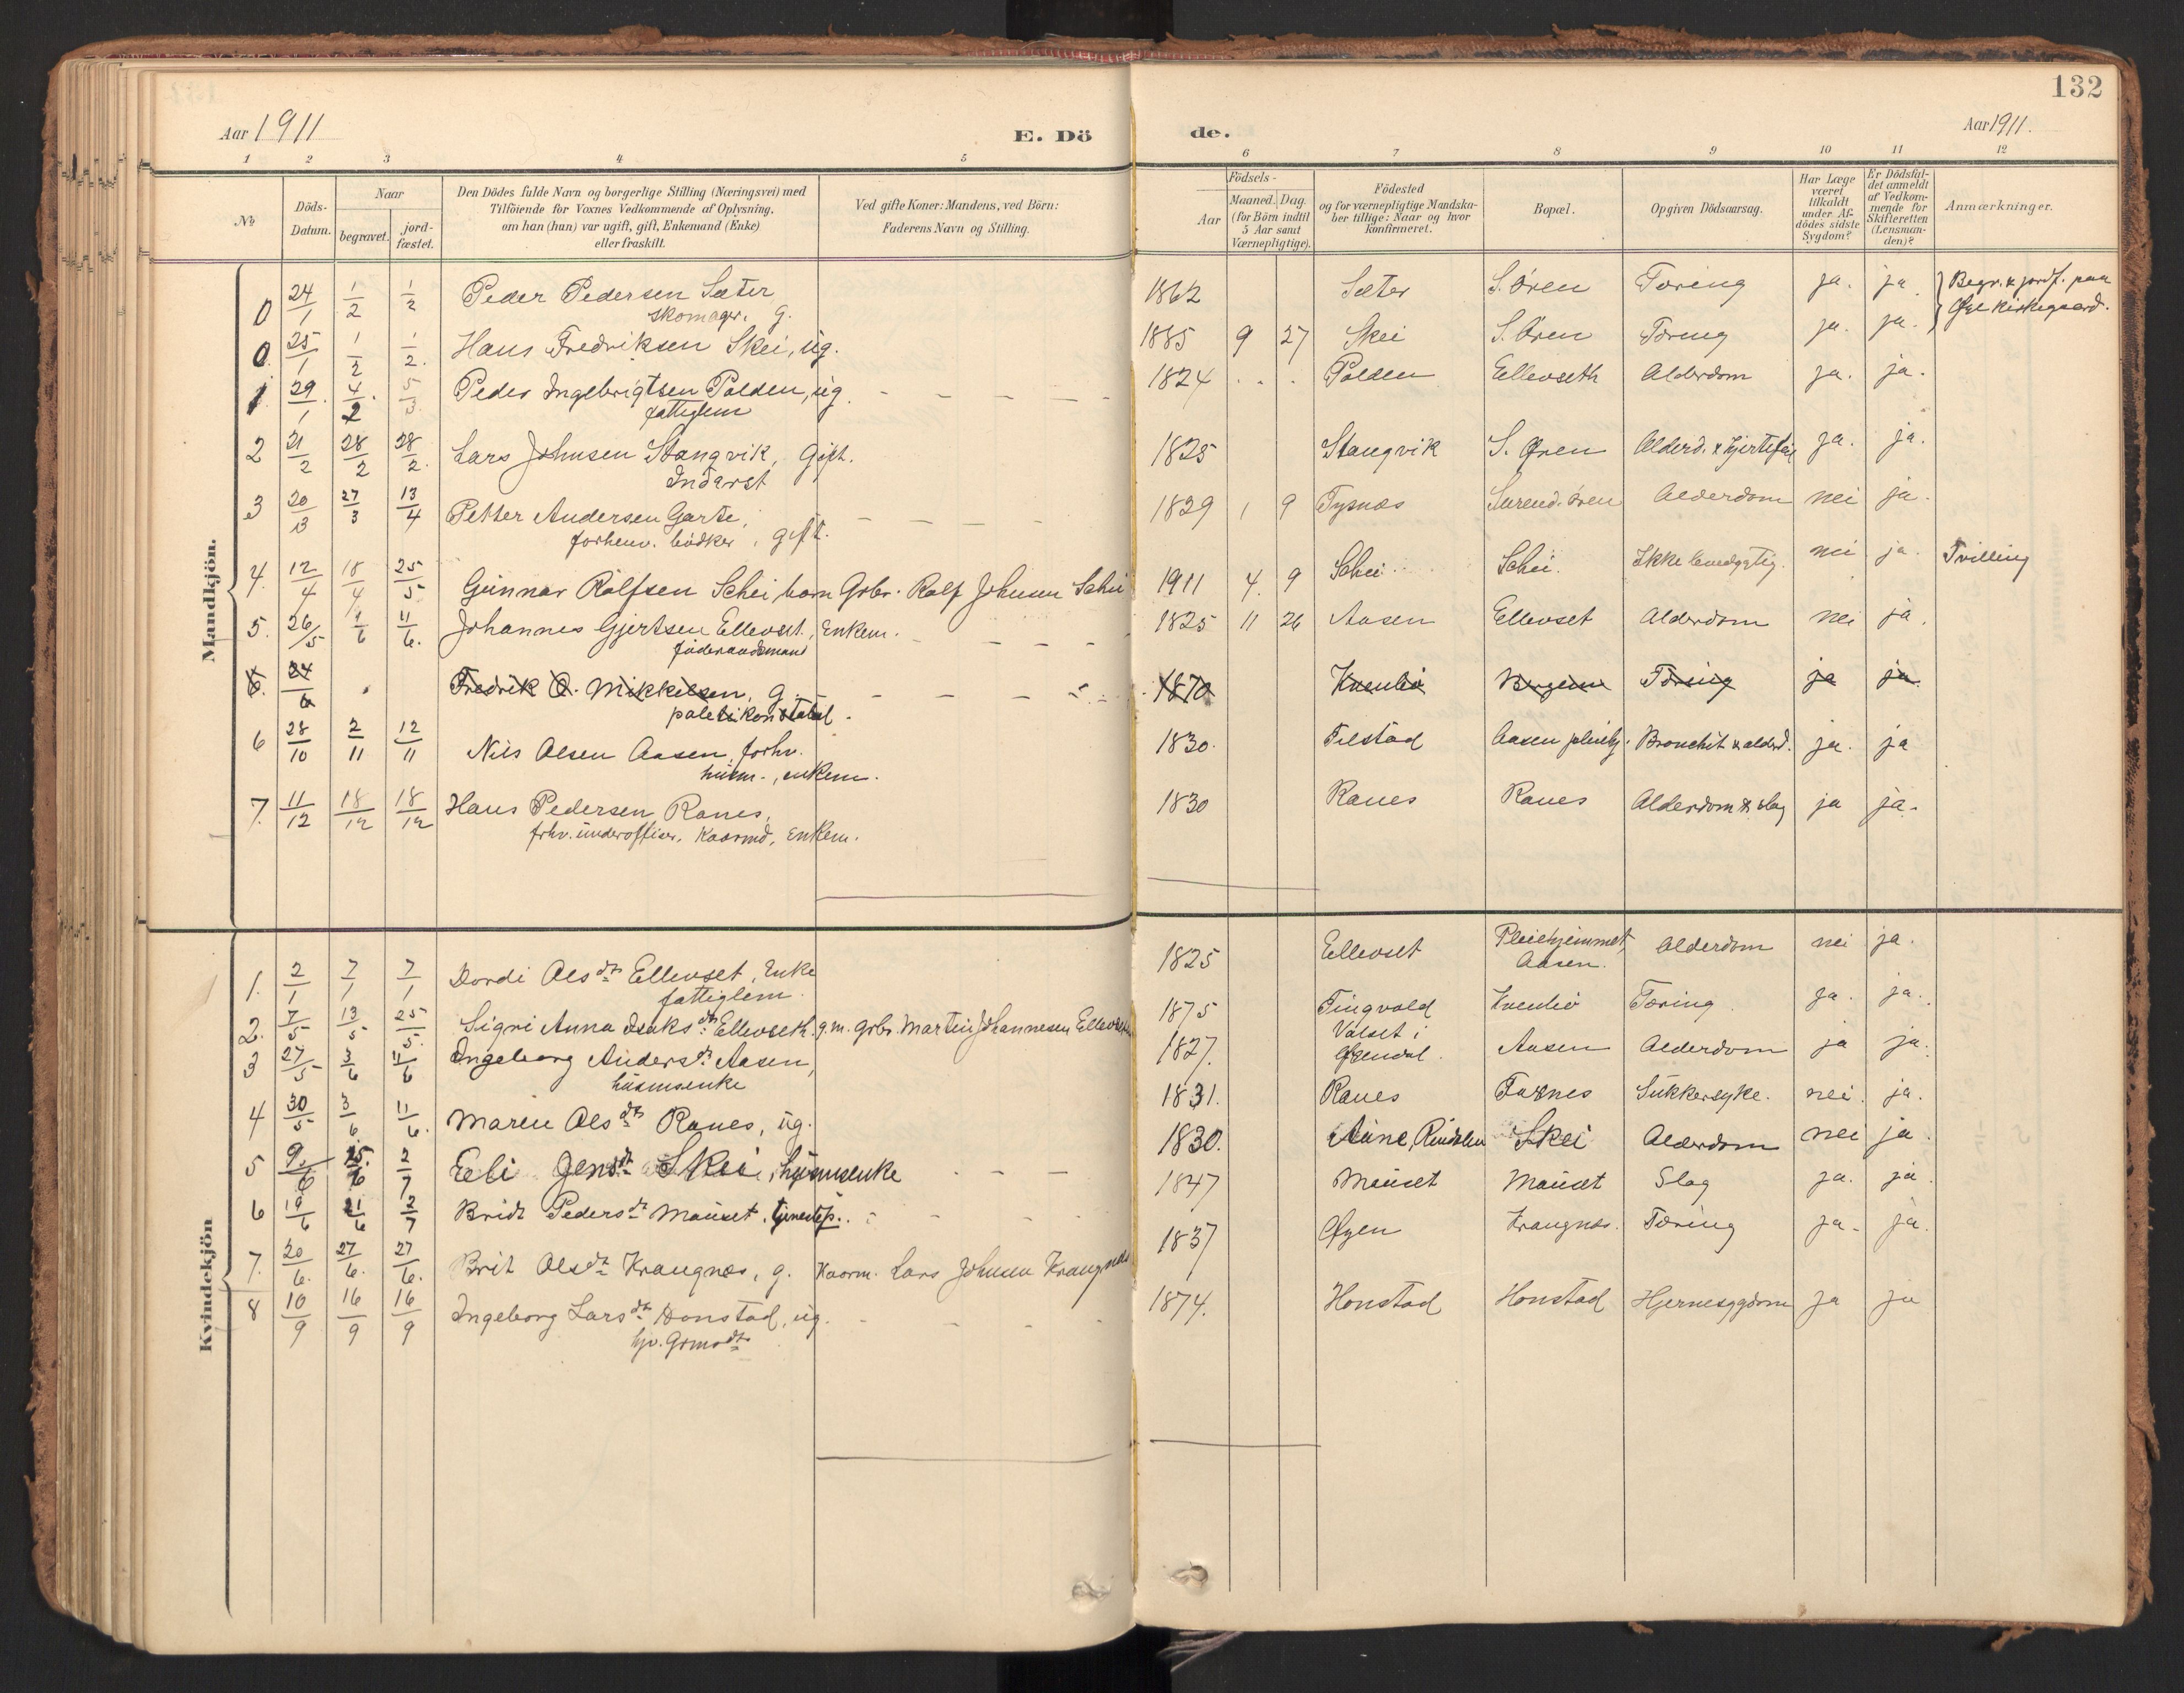 132
Aar 1911
E. Dö
de.
Aar 1911.
1 2 3 4 5 6 7 8 9 10 11 12
№
Döds-Datum.
Naar
begravet.
jord-fæstet.
Den Dödes fulde Navn og borgerlige Stilling (Næringsvei) med
Tilföiende for Voxnes Vedkommende af Oplysning.
om han (hun) var ugift, gift, Enkemand (Enke)
eller fraskilt.
Ved gifte Koner: Mandens, ved Börn:
Faderens Navn og Stilling.
Födsels-
Aar
Maaned. Dag.
(for Börn indtil
5 Aar samt
Værnepligtige).
Födested
og for værnepligtige Mandska-
ber tillige: Naar og hvor
konfirmeret.
Bopæl.
Opgiven Dödsaarsag.
Har Læge
været
tilkaldt
under Af-
dödes sidste
Sygdom?
Er Dödsfal-
det anmeldt
af Vedkom-
mende for
Skifteretten
(Lensman-
den)?
Anmærkninger.
Mandkjön.
0 24/1 1/2 1/2 Peder Pedersen Sæter 1862 Sæter S. Øren Tæring ja. ja. Begr. & jordf. paa
skomager. g. Øye kirkegaard.
0. 25/1 1/2 1/2. Hans Fredriksen Skei, ug. 1885 9 27 Skei S. Øren Tæring ja. ja.
1. 29/1 4/2 5/3 Peder Ingebrigtsen Polden, ug. 1824 Polden Ellevseth Alderdom ja. ja.
fattiglem
2 21/2 28/2 28/2. Lars Johnsen Stangvik, Gift. 1825 Stangvik S. Øren Alderd. & Hjertefeil ja. ja.
Inderst
3 20/3 27/3 13/4 Petter Andersen Garte, 1829 1 9 Tysnæs Surend. øren Alderdom nei ja.
forhenv. bødker, gift.
4. 12/4 18/4 25/5 Gunnar Rolfsen Schei barn Gbr. Rolf Johnsen Schei 1911 4. 9 Schei Schei. Ikke lægdygtig. nei ja. Tvilling
5. 26/5 4/6 11/6. Johannes Gjertsen Ellevset, Enkem. 1825 11 26 Aasen Ellevset Alderdom nei ja.
føderaadsmand
6. 24/6 Fredrik O. Mikkelsen, g. 1870 Kvenbø Bergen Tæring ja ja
politikonstabel.
6 28/10 2/11 12/11 Nils Olsen Aasen, forhv. 1830. Tilstad Aasen pleiehj. Bronchit & alderd. ja. ja
husm., enkem.
7. 11/12 18/12 18/12 Hans Pedersen Ranes, 1830 Ranes Ranes Alderdom & slag ja ja.
frhv. underofficer, Kaarmd, Enkem.
Kvindekjön
1. 2/1 7/1 7/1 Dordi Olsdtr Ellevset, Enke 1825 Ellevset Pleiehjemmet, Aasen. Alderdom nei ja.
fattiglem.
2. 7/5 13/5 25/5. Sigri Anna Isaksdtr Ellevseth. g.m. Gbr. Martin Johannesen Ellevseth 1875 Tingvold Kvenbø Tæring. ja. ja.
3 27/5 3/6 11/6 Ingeborg Andersdtr Aasen, 1827. Valset i Aasen Alderdom ja ja.
husmsenke
4 30/5 3/6 11/6. Maren Olsdtr Ranes, ug. 1831. Ranes Tarnes Sukkersyke. nei. ja.
5 9/6 15/6 2/7 Eli Jensdt Skei, husmsenke 1830. Aune, Rindalen Skei Alderdom nei ja.
6 19/6 21/6 2/7 Brit Pedersdt Mauset. tjenestep. 1847 Mauset Mauset Slag ja. ja
7. 20/6. 27/6. 27/6. Brit Olsdt Krangnæs, g. Kaarm. Lars Johnsen Krangnæs 1837 Øyen Krangnæs. Tæring ja. ja.
8 10/9 16/9 16/9 Ingeborg Larsdtr Honstad, ug. 1874. Honstad Honstad Hjernesygdom ja ja